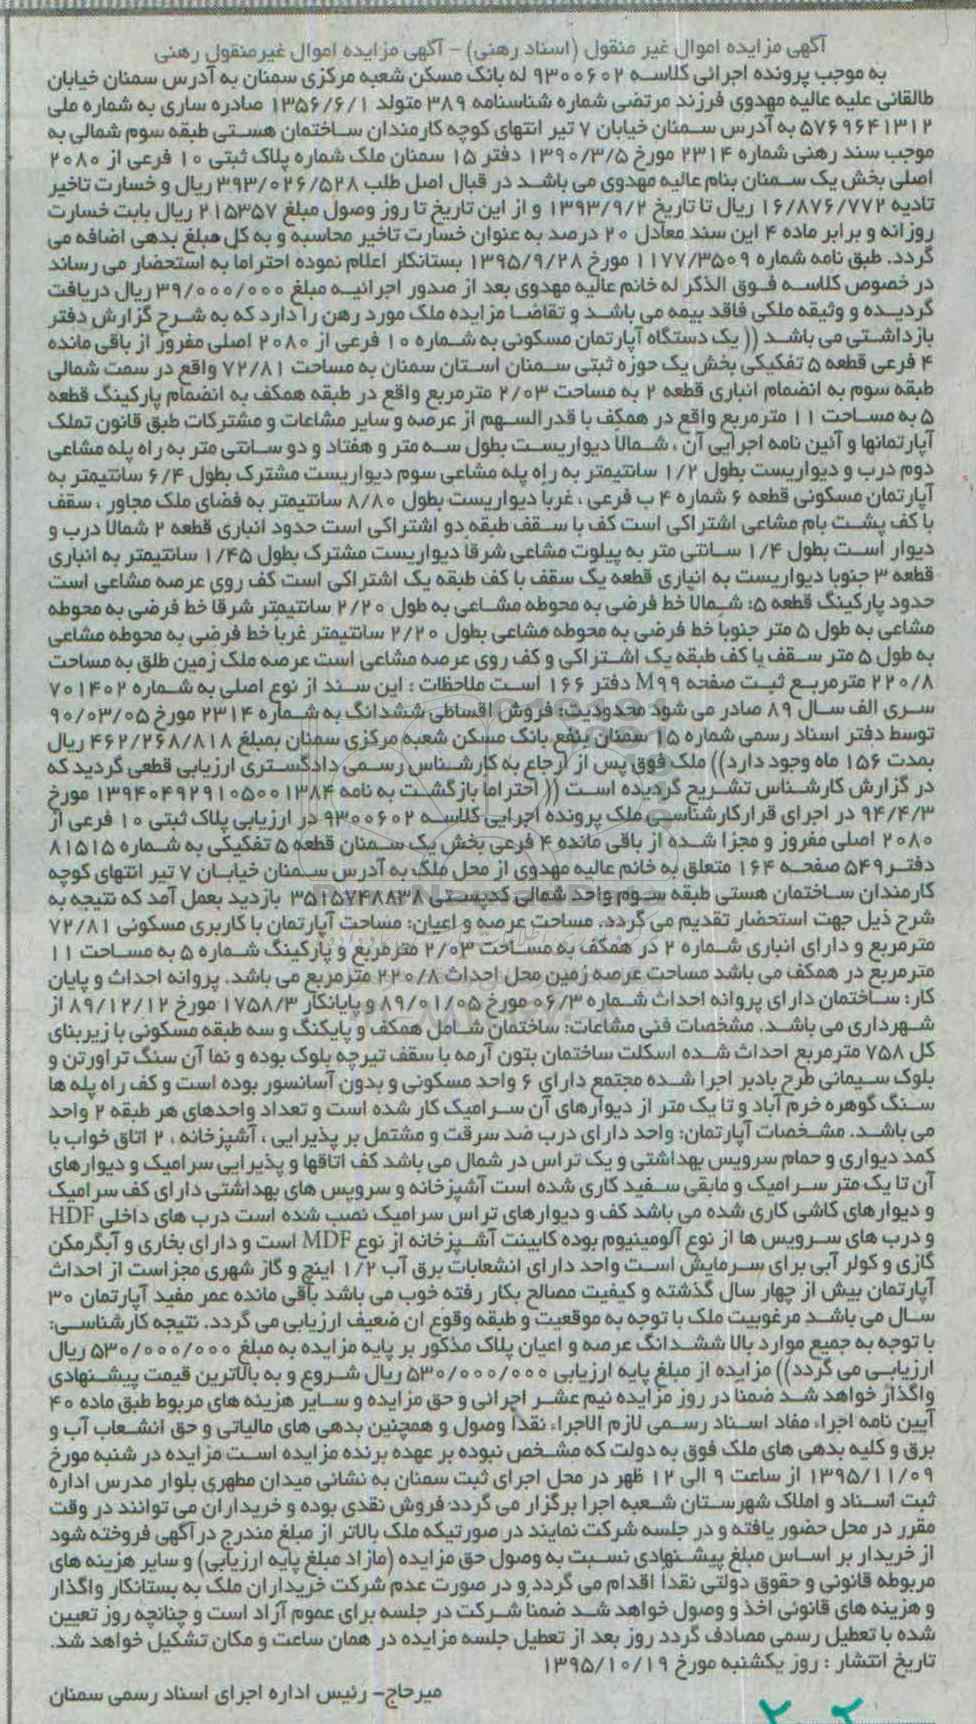 آگهی مزایده اموال غیر منقول (اسناد رهنی) - آگهی مزایده اموال غیرمنقول رهنی
به موجب پرونده اجرائی کلاسه ۹۳۰۰۶۰۲ له بانک مسکن شعبه مرکزی سمنان به آدرس سمنان خیابان
طالقانی علیه عالیه مهدوی فرزند مرتضی شماره شناسنامه ۳۸۹ متولد ۱۳۵۶/۶/۱ صادره ساری به شماره ملی
۵۷۶۹۶۴۱۳۱۲ به آدرس سمنان خیابان ۷ تیر انتهای کوچه کارمندان ساختمان هستی طبقه سوم شمالی به
موجب سند رهنی شماره ۲۳۱۴ مورخ ۱۳۹۰/۳/۵ دفتر ۱۵ سمنان ملک شماره پلاک ثبتی ۱۰ فرعی از ۲۰۸۰
اصلی بخش یک سمنان بنام عالیه مهدوی می باشد در قبال اصل طلب ۳۹۳/۰۲۶/۵۲۸ ریال و خسارت تاخیر
تادیه ۱۶/۸۷۶/۷۷۲ ریال تا تاریخ ۱۳۹۳/۹/۲ و از این تاریخ تا روز وصول مبلغ ۲۱۵۳۵۷ ریال بابت خسارت
روزانه و برابر ماده ۴ این سند معادل ۲۰ درصد به عنوان خسارت تاخیر محاسبه و به کل مبلغ بدهی اضافه می
گردد. طبق نامه شماره ۱۱۷۷/۳۵۰۹ مورخ ۱۳۹۵/۹/۲۸ بستانکار اعلام نموده احتراما به استحضار می رساند
در خصوص کلاسه فوق الذکر له خانم عالیه مهدوی بعد از صدور اجرائیه مبلغ ۳۹/۰۰۰/۰۰۰ ریال دریافت
گردیده و وثیقه ملکی فاقد بیمه می باشد و تقاضا مزایده ملک مورد رهن را دارد که به شرح گزارش دفتر
بازداشتی می باشد (( یک دستگاه آپارتمان مسکونی به شماره ۱۰ فرعی از ۲۰۸۰ اصلی مفروز از باقی مانده
۴ فرعی قطعه ۵ تفکیکی بخش یک حوزه ثبتی سمنان استان سمنان به مساحت ۷۲/۸۱ واقع در سمت شمالی
طبقه سوم به انضمام انباری قطعه ۲ به مساحت ۲/۰۳ مترمربع واقع در طبقه همکف به انضمام پارکینگ قطعه
۵ به مساحت ۱۱ مترمربع واقع در همکف با قدرالسهم از عرصه و سایر مشاعات و مشترکات طبق قانون تملک
آپارتمانها و آئین نامه اجرایی آن ، شمالا دیواریست بطول سه متر و هفتاد و دو سانتی متر به راه پله مشاعی
دوم درب و دیواریست بطول ۱/۲ سانتیمتر به راه پله مشاعی سوم دیواریست مشترک بطول ۶/۴ سانتیمتر به
آپارتمان مسکونی قطعه ۶ شماره ۴ ب فرعی ، غربا دیواریست بطول ۸/۸۰ سانتیمتر به فضای ملک مجاور ، سقف
با کف پشت بام مشاعی اشتراکی است کف با سقف طبقه دو اشتراکی است حدود انباری قطعه ۲ شمالا درب و
دیوار است بطول ۱/۴ سانتی متر به پیلوت مشاعی شرقا دیواریست مشترک بطول ۱/۴۵ سانتیمتر به انباری
قطعه ۳ جنوبا دیواریست به انباری قطعه یک سقف با کف طبقه یک اشتراکی است کف روی عرصه مشاعی است
حدود پارکینگ قطعه ۵: شمالا خط فرضی به محوطه مشاعی به طول ۲/۲۰ سانتیمتر شرقا خط فرضی به محوطه
مشاعی به طول ۵ متر جنوبا خط فرضی به محوطه مشاعی بطول ۲/۲۰ سانتیمتر غربا خط فرضی به محوطه مشاعی
به طول ۵ متر سقف با کف طبقه یک اشتراکی و کف روی عرصه مشاعی است عرصه ملک زمین طلق به مساحت
۲۲۰/۸ مترمربع ثبت صفحه M۹۹ دفتر ۱۶۶ است ملاحظات : این سند از نوع اصلی به شماره ۷۰۱۴۰۲
سری الف سال ۸۹ صادر می شود محدودیت: فروش اقساطی ششدانگ به شماره ۲۳۱۴ مورخ ۹۰/۰۳/۰۵
توسط دفتر اسناد رسمی شماره ۱۵ سمنان بنفع بانک مسکن شعبه مرکزی سمنان بمبلغ ۴۶۲/۲۶۸/۸۱۸ ریال
بمدت ۱۵۶ ماه وجود دارد)) ملک فوق پس از ارجاع به کارشناس رسمی دادگستری ارزیابی قطعی گردید که
در گزارش کارشناس تشریح گردیده است (( احتراما بازگشت به نامه ۱۳۹۴۰۴۹۲۹۱۰۵۰۰۱۳۸۴ مورخ
۹۴/۴/۳ در اجرای قرارکارشناسی ملک پرونده اجرایی کلاسه ۹۳۰۰۶۰۲ در ارزیابی پلاک ثبتی ۱۰ فرعی از
۲۰۸۰ اصلی مفروز و مجزا شده از باقی مانده ۴ فرعی بخش یک سمنان قطعه ۵ تفکیکی به شماره ۸۱۵۱۵
دفتر ۵۴۹ صفحه ۱۶۴ متعلق به خانم عالیه مهدوی از محل ملک به آدرس سمنان خیابان ۷ تیر انتهای کوچه
کارمندان ساختمان هستی طبقه سوم واحد شمالی کدپستی ۳۵۱۵۷۴۸۸۳۸ بازدید بعمل آمد که نتیجه به
شرح ذیل جهت استحضار تقدیم می گردد. مساحت عرصه و اعیان: مساحت آپارتمان با کاربری مسکونی ۷۲/۸۱
مترمربع و دارای انباری شماره ۲ در همکف به مساحت ۲/۰۳ مترمربع و پارکینگ شماره ۵ به مساحت ۱۱
مترمربع در همکف می باشد مساحت عرصه زمین محل احداث ۲۲۰/۸ مترمربع می باشد. پروانه احداث و پایان
کار: ساختمان دارای پروانه احداث شماره ۰۶/۳ مورخ ۸۹/۰۱/۰۵ و پایانکار ۱۷۵۸/۳ مورخ ۸۹/۱۲/۱۲ از
شهرداری می باشد. مشخصات فنی مشاعات: ساختمان شامل همکف و پایکنگ و سه طبقه مسکونی با زیربنای
کل ۷۵۸ مترمربع احداث شده اسکلت ساختمان بتون آرمه با سقف تیرچه بلوک بوده و نما آن سنگ تراورتن و
بلوک سیمانی طرح بادبر اجرا شده مجتمع دارای ۶ واحد مسکونی و بدون آسانسور بوده است و کف راه پله ها
سنگ گوهره خرم آباد و تا یک متر از دیوارهای آن سرامیک کار شده است و تعداد واحدهای هر طبقه ۲ واحد
می باشد. مشخصات آپارتمان: واحد دارای درب ضد سرقت و مشتمل بر پذیرایی ، آشپزخانه ، ۲ اتاق خواب با
کمد دیواری و حمام سرویس بهداشتی و یک تراس در شمال می باشد کف اتاقها و پذیرایی سرامیک و دیوارهای
آن تا یک متر سرامیک و مابقی سفید کاری شده است آشپزخانه و سرویس های بهداشتی دارای کف سرامیک
و دیوارهای کاشی کاری شده می باشد کف و دیوارهای تراس سرامیک نصب شده است درب های داخلی HDF
و درب های سرویس ها از نوع آلومینیوم بوده کابینت آشپزخانه از نوع MDF است و دارای بخاری و آبگرمکن
گازی و کولر آبی برای سرمایش است واحد دارای انشعابات برق آب ۱/۲ اینچ و گاز شهری مجزاست از احداث
آپارتمان بیش از چهار سال گذشته و کیفیت مصالح بکار رفته خوب می باشد باقی مانده عمر مفید آپارتمان ۳۰
سال می باشد مرغوبیت ملک با توجه به موقعیت و طبقه وقوع ان ضعیف ارزیابی می گردد. نتیجه کارشناسی:
با توجه به جمیع موارد بالا ششدانگ عرصه و اعیان پلاک مذکور بر پایه مزایده به مبلغ ۵۳۰/۰۰۰/۰۰۰ ریال
ارزیابی می گردد)) مزایده از مبلغ پایه ارزیابی ۵۳۰/۰۰۰/۰۰۰ ریال شروع و به بالاترین قیمت پیشنهادی
واگذار خواهد شد ضمنا در روز مزایده نیم عشر اجرائی و حق مزایده و سایر هزینه های مربوط طبق ماده ۴۰
آیین نامه اجراء مفاد اسناد رسمی لازم الاجراء نقدا وصول و همچنین بدهی های مالیاتی و حق انشعاب آب و
برق و کلیه بدهی های ملک فوق به دولت که مشخص نبوده بر عهده برنده مزایده است مزایده در شنبه مورخ
۱۳۹۵/۱۱/۰۹ از ساعت ۹ الی ۱۲ ظهر در محل اجرای ثبت سمنان به نشانی میدان مطهری بلوار مدرس اداره
ثبت اسناد و املاک شهرستان شعبه اجرا برگزار می گردد فروش نقدی بوده و خریداران می توانند در وقت
مقرر در محل حضور یافته و در جلسه شرکت نمایند در صورتیکه ملک بالاتر از مبلغ مندرج در آگهی فروخته شود
از خریدار بر اساس مبلغ پیشنهادی نسبت به وصول حق مزایده (مازاد مبلغ پایه ارزیابی) و سایر هزینه های
مربوطه قانونی و حقوق دولتی نقدا اقدام می گردد و در صورت عدم شرکت خریداران ملک به بستانکار واگذار
و هزینه های قانونی اخذ و وصول خواهد شد ضمنا شرکت در جلسه برای عموم آزاد است و چنانچه روز تعیین
شده با تعطیل رسمی مصادف گردد روز بعد از تعطیل جلسه مزایده در همان ساعت و مکان تشکیل خواهد شد.
تاریخ انتشار : روز یکشنبه مورخ ۱۳۹۵/۱۰/۱۹
میرحاج- رئیس اداره اجرای اسناد رسمی سمنان